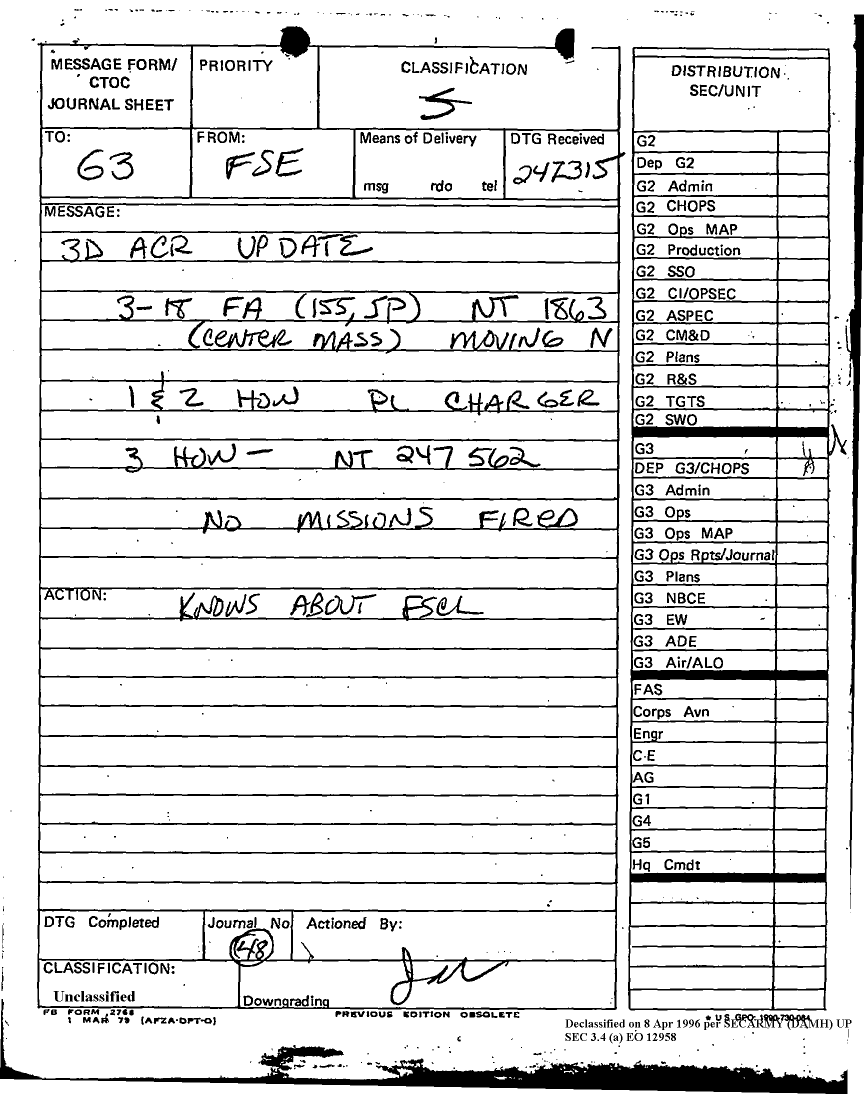 MESSAGE FORM/
CTOC
JOURNAL SHEET
PRIORITY
CLASSIFICATION
S
TO:
G3
FROM:
FSE
Means of Delivery
msg rdo tel
DTG Received
247315
MESSAGE:
3D ACR UPDATE
3-18 FA (155, SP) NT 1863
(CENTER MASS) MOVING N
1 & 2 HOW PL CHARGER
3 HOW - NT 247 562
NO MISSIONS FIRED
ACTION:
KNOWS ABOUT FSCL
DTG Completed
Journal No
48
Actioned By:
CLASSIFICATION:
Unclassified
Downgrading
FB FORM 2768
1 MAR 79 (AFZA-DPT-O)
PREVIOUS EDITION OBSOLETE
DISTRIBUTION
SEC/UNIT
G2
Dep G2
G2 Admin
G2 CHOPS
G2 Ops MAP
G2 Production
G2 SSO
G2 CI/OPSEC
G2 ASPEC
G2 CM&D
G2 Plans
G2 R&S
G2 TGTS
G2 SWO
G3
DEP G3/CHOPS
G3 Admin
G3 Ops
G3 Ops MAP
G3 Ops Rpts/Journal
G3 Plans
G3 NBCE
G3 EW
G3 ADE
G3 Air/ALO
FAS
Corps Avn
Engr
C-E
AG
G1
G4
G5
Hq Cmdt
* U.S. GPO: 1990-730-084
Declassified on 8 Apr 1996 per SECARMY (DAMH) UP
SEC 3.4 (a) EO 12958